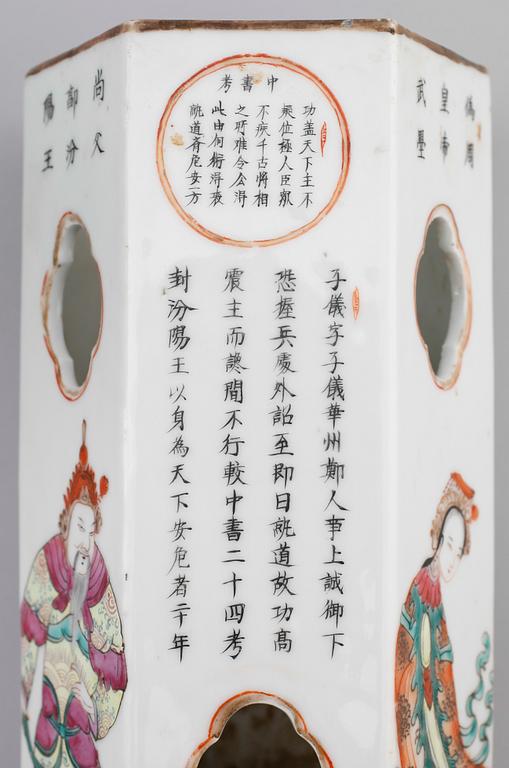 偽周
皇帝
武曌
中書考
功蓋天下主不
疑位極人臣衆
不疾千古將相
之所難令公淂
此由何術淂
就道危安一方
子儀字子儀華州鄭人事上誠御下
恕握兵處外詔至即日就道故功高
震主而讒間不行較中書二十四考
封汾陽王以身為天下安危者二十年
尚父
郭汾
陽王